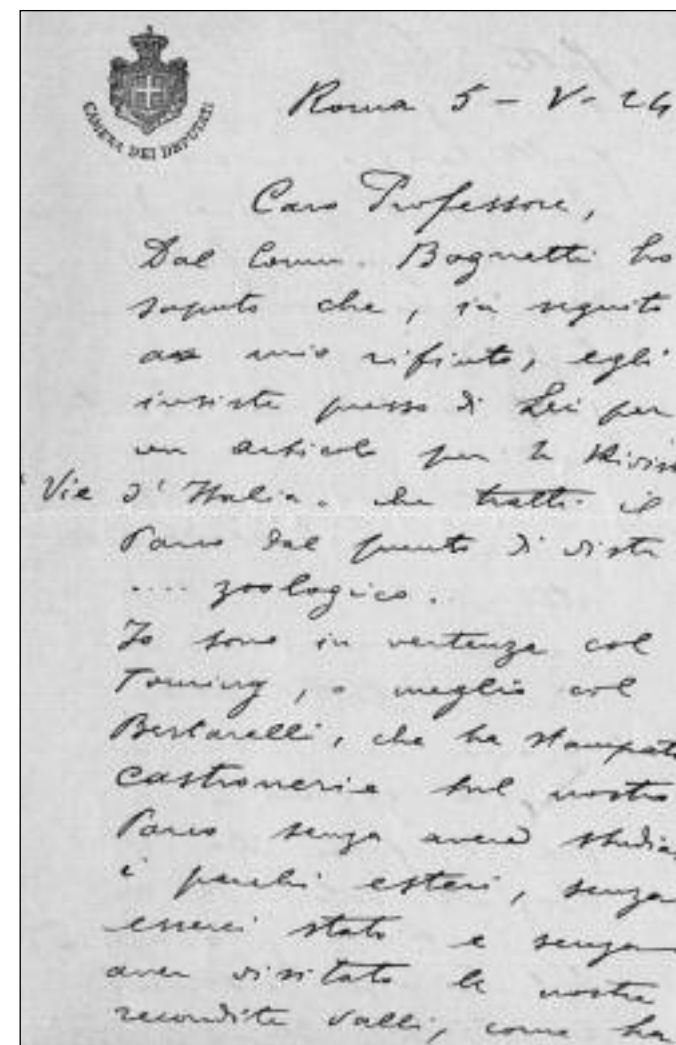 CAMERA DEI DEPUTATI
Roma 5 - V - 24
Caro Professore,
Dal Comm. Bognetti ho
saputo che, in seguito
al mio rifiuto, egli
insiste presso di Lei per
un articolo per la Rivis
Vie d'Italia. che tratti il
Parco dal punto di vista
.... zoologico.
Io sono in vertenza col
Touring, o meglio col
Bertarelli, che ha stampato
castronerie sul nostro
Parco senza avere studia
i parchi esteri, senza
esserci stato e senza
aver visitato le nostre
recondite valli, come ha